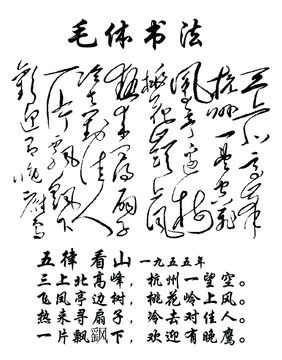 毛体书法
三上北高峰
杭州一望空飛
鳳亭邊樹
桃花嶺上風
热来寻扇子
冷去对佳人
一片飘飖下
歡迎有晚鹰
五律 看山 一九五五年
三上北高峰,杭州一望空。
飞凤亭边树,桃花岭上风。
热来寻扇子,冷去对佳人。
一片飘飖下,欢迎有晚鹰。